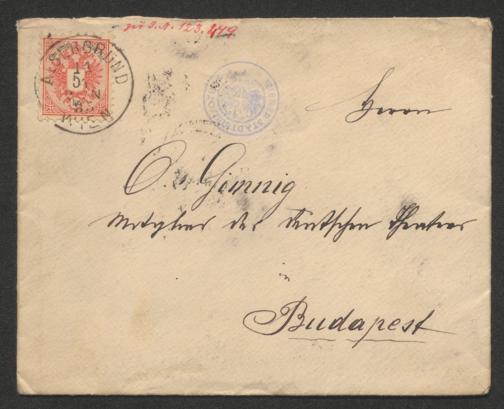 zu I.N. 123.449
ALSERGRUND
5
WIEN
Herrn
O. Gimnig
Mitglied des deutschen Theaters
in
Budapest